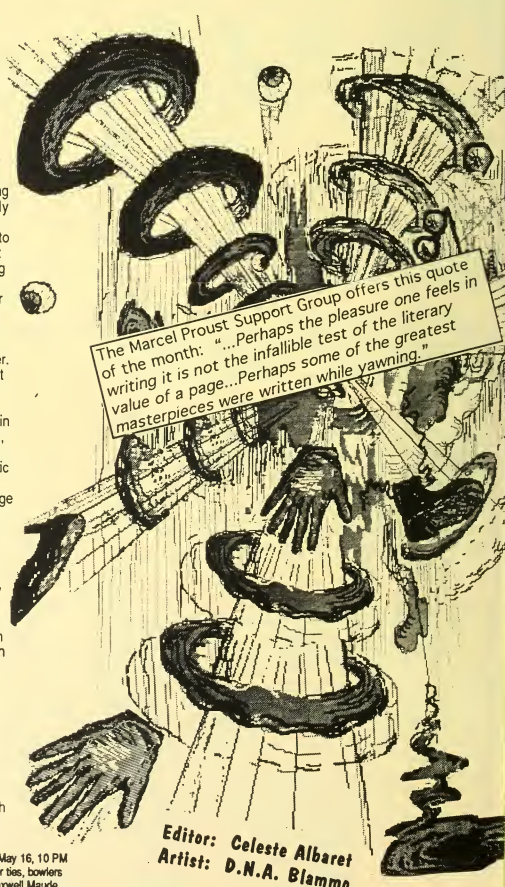 ng
ly
to
g
r
er.
t
in
,
ic
ge
n
n
h
The Marcel Proust Support Group offers this quote
of the month: "...Perhaps the pleasure one feels in
writing it is not the infallible test of the literary
value of a page...Perhaps some of the greatest
masterpieces were written while yawning."
Editor: Celeste Albaret
Artist: D.N.A. Blammo
May 16, 10 PM
r ties, bowlers